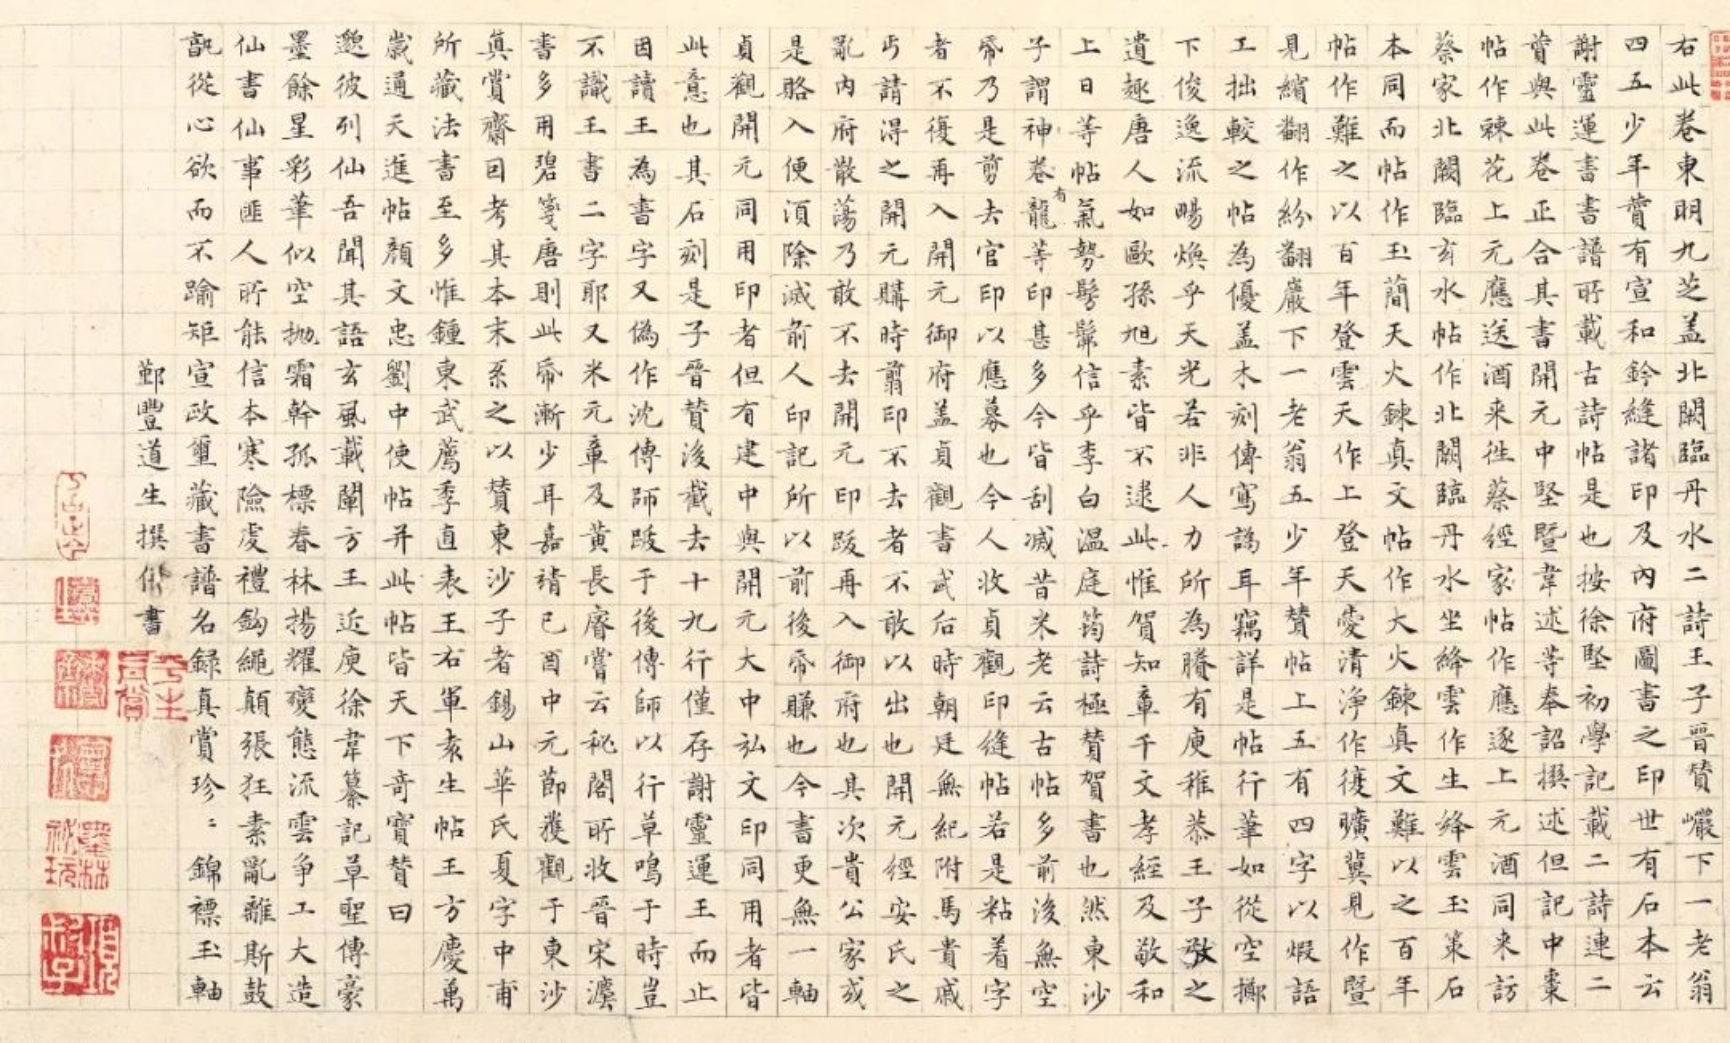 右此卷東明九芝盖北闕臨丹水二詩王子晉贊巗下一老翁
四五少年贊有宣和鈐縫諸印及內府圖書之印世有石本云
謝靈運書書譜所載古詩帖是也按徐堅初學記載二詩連二
贊與此卷正合其書開元中堅暨韋述等奉詔撰述但記中棗
帖作棘花上元應送酒来徃蔡經家帖作應逐上元酒同来訪
蔡家北闕臨玄水帖作北闕臨丹水坐絳雲作生絳雲玉策石
本同而帖作玉簡天火鍊真文帖作大火鍊真文難以之百年
帖作難之以百年登雲天作上登天愛清淨作復曠冀見作暨
見繽翻作紛翻巖下一老翁五少年贊帖上五有四字以煆語
工拙較之帖為優盖木刻傳寫譌耳竊詳是帖行筆如從空擲
下俊逸流暢煥乎天光若非人力所為賸有庾稚恭王子敬之
遺趣唐人如歐孫旭素皆不逮此惟賀知章千文孝經及敬和
上日等帖氣勢髣髴信乎李白溫庭筠詩極贊賀書也然東沙
子謂神卷有龍等印甚多今皆刮滅昔米老云古帖多前後無空
帋乃是剪去官印以應募也今人收貞觀印縫帖若是粘着字
者不復再入開元御府盖貞觀書武后時朝廷無紀附馬貴戚
丐請得之開元購時剪印不去者不敢以出也開元經安氏之
亂內府散蕩乃敢不去開元印跋再入御府也其次貴公家或
是賂入便湏除滅前人印記所以前後帋賺也今書更無一軸
貞觀開元同用印者但有建中與開元大中弘文印同用者皆
此意也其石刻是子晉贊後截去十九行僅存謝靈運王而止
因讀王為書字又偽作沈傳師跋于後傳師以行草鳴于時豈
不識王書二字耶又米元章及黃長睿嘗云秘閣所收晉宋瀆
書多用碧箋唐則此帋漸少耳嘉靖己酉中元節獲觀于東沙
真賞齋因考其本末系之以贊東沙子者錫山華氏夏字中甫
所藏法書至多惟鍾東武薦季直表王右軍袁生帖王方慶萬
歲通天進帖顏文忠劉中使帖并此帖皆天下竒寶贊曰
邈彼列仙吾聞其語玄風載闡方王近庾徐韋纂記草聖傳豪
墨餘星彩筆似空拋霜幹孤標春林揚耀變態流雲争工大造
仙書仙事匪人所能信本寒險虔禮鈎繩顛張狂素亂離斯鼓
孰從心欲而不踰矩宣政璽藏書譜名録真賞珍〻錦褾玉軸
鄞豐道生撰併書